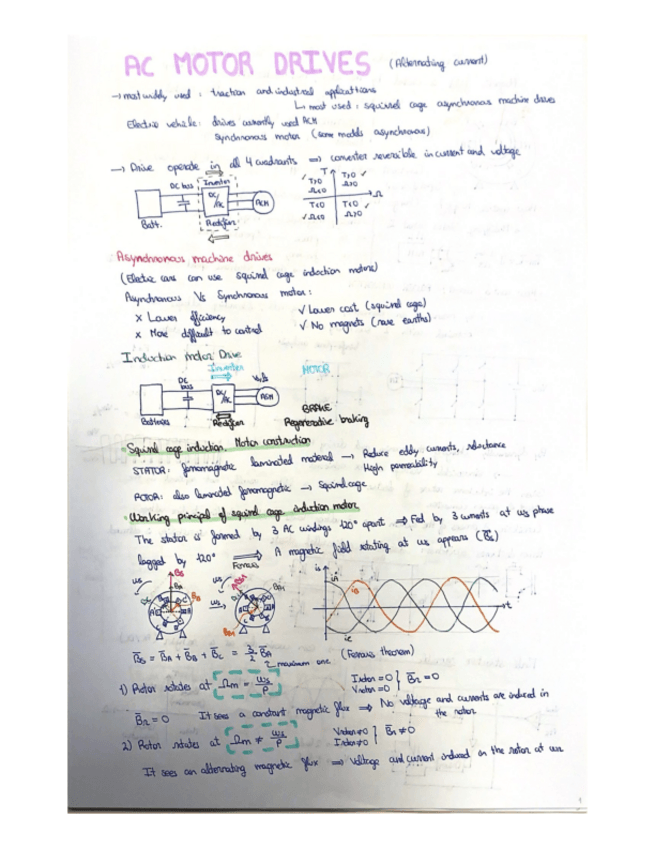 AC MOTOR DRIVES (Alternating current)
→ most widely used : traction and industrial applications
↳ most used : squirrel cage asynchronous machine drives
Electric vehicle: drives currently used ACM
Synchronous motor (some models asynchronous)
→ Drive operate in all 4 cuadrants ⇒ converter reversible in current and voltage
DC bus Inverter
DC/AC
ACM
Batt.
Rectifier
T
Ω
✓ T>0 Ω<0
T>0 ✓ Ω>0
T<0 ✓ Ω<0
T<0 ✓ Ω>0
Asynchronous machine drives
(Electric cars can use squirrel cage induction motors)
Asynchronous Vs Synchronous motor:
x Lower efficiency
✓ Lower cost (squirrel cage)
x More difficult to control
✓ No magnets (rare earths)
Induction motor Drive
Inverter
MOTOR
DC bus
DC/AC
ACM
Batteries
Rectifier
BRAKE
Regenerative braking
· Squirrel cage induction Motor construction
STATOR: ferromagnetic laminated material → Reduce eddy currents, reluctance
High permeability
ROTOR: also laminated ferromagnetic → Squirrel cage
· Working principal of squirrel cage induction motor
The stator is formed by 3 AC windings 120° apart ⇒ Fed by 3 currents at ωs phase
lagged by 120° ⇒ A magnetic field rotating at ωs appears (B̄s)
Ferraris
ωs
Bs
BA
ωs
is
ωt
ic
B̄s = B̄A + B̄B + B̄C = 3/2 B̄A (Ferraris theorem)
maximum one
1) Rotor rotates at Ωm = ωs/P
Irotor = 0
Vrotor = 0
} B̄r = 0
B̄r = 0 It sees a constant magnetic flux ⇒ No voltage and currents are induced in
the rotor
2) Rotor rotates at Ωm ≠ ωs/P
Vrotor ≠ 0
Irotor ≠ 0
} B̄r ≠ 0
It sees an alternating magnetic flux ⇒ Voltage and current induced on the rotor at ωr
1